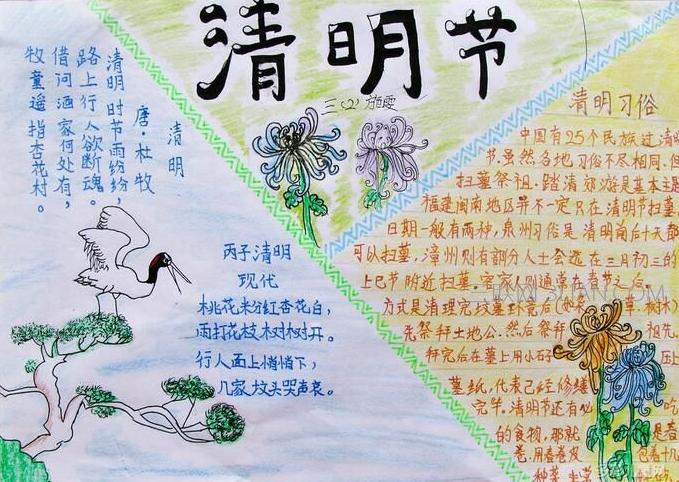 清明节
三(2)
清明
唐·杜牧
清明时节雨纷纷,
路上行人欲断魂。
借问酒家何处有,
牧童遥指杏花村。
丙子清明
现代
桃花粉红杏花白,
雨打花枝树树开。
行人面上悄悄下,
几家坟头哭声哀。
清明习俗
中国有25个民族过清明
节.虽然各地习俗不尽相同,但
扫墓祭祖.踏青郊游是基本主题
福建闽南地区并不一定只在清明节扫墓,
日期一般有两种,泉州习俗是清明前后十天都
可以扫墓,漳州则有部分人士会选在三月初三的
上巳节附近扫墓.客家人则通常在春节之后。
方式是清理完坟墓环境后
先祭拜土地公.然后祭拜 祖先.
拜完后在墓上用小石 压上
墓纸,代表已经修缮
完毕.清明节还有必 吃
的食物,那就 是春
卷.用春卷皮 包着十几
种菜